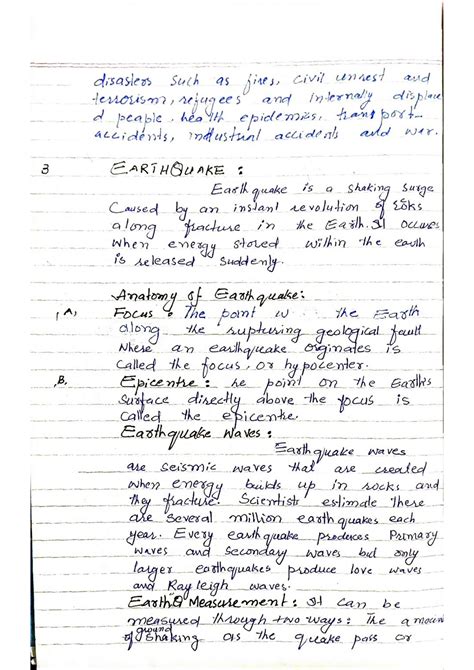 disasters such as fires, civil unrest and
terrorism, refugees and internaly displace
d peaple, health epidemics, transport
accidents, industrial accidents and war.
3 EARTHQUAKE :
Earthquake is a shaking surge
Caused by an instant revolution of
along fracture in the Earth. It occures
when energy stored within the earth
is released suddenly.
Anatomy of Earthquake:
A) Focus : The point the Earth
along the rupturing geological fault
where an earthquake originates is
called the focus, or hypocenter.
B. Epicentre : he point on the Earth's
surface directly above the focus is
called the epicentre.
Earthquake Waves :
Earthquake waves
are seismic waves that are created
when energy builds up in rocks and
they fracture. Scientists estimate there
are several million earthquakes each
year. Every earthquake produces Primary
waves and secondary waves but only
larger earthquakes produce love waves
and Rayleigh waves.
Earth Q Measurement : It can be
measured through two ways : The amoun
of ground shaking as the quake pass or